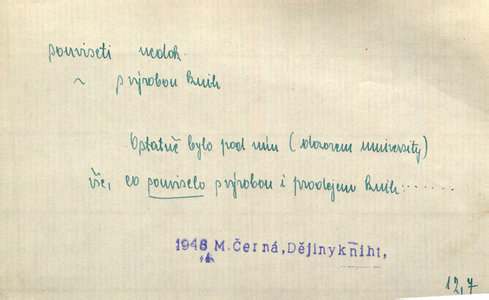 souviseti nedok.
~ s výrobou knih
Ostatně bylo pod ním (dozorem university)
vše, co souviselo s výrobou i prodejem knih......
1948 M.Černá,Dějiny kniht,
12,7